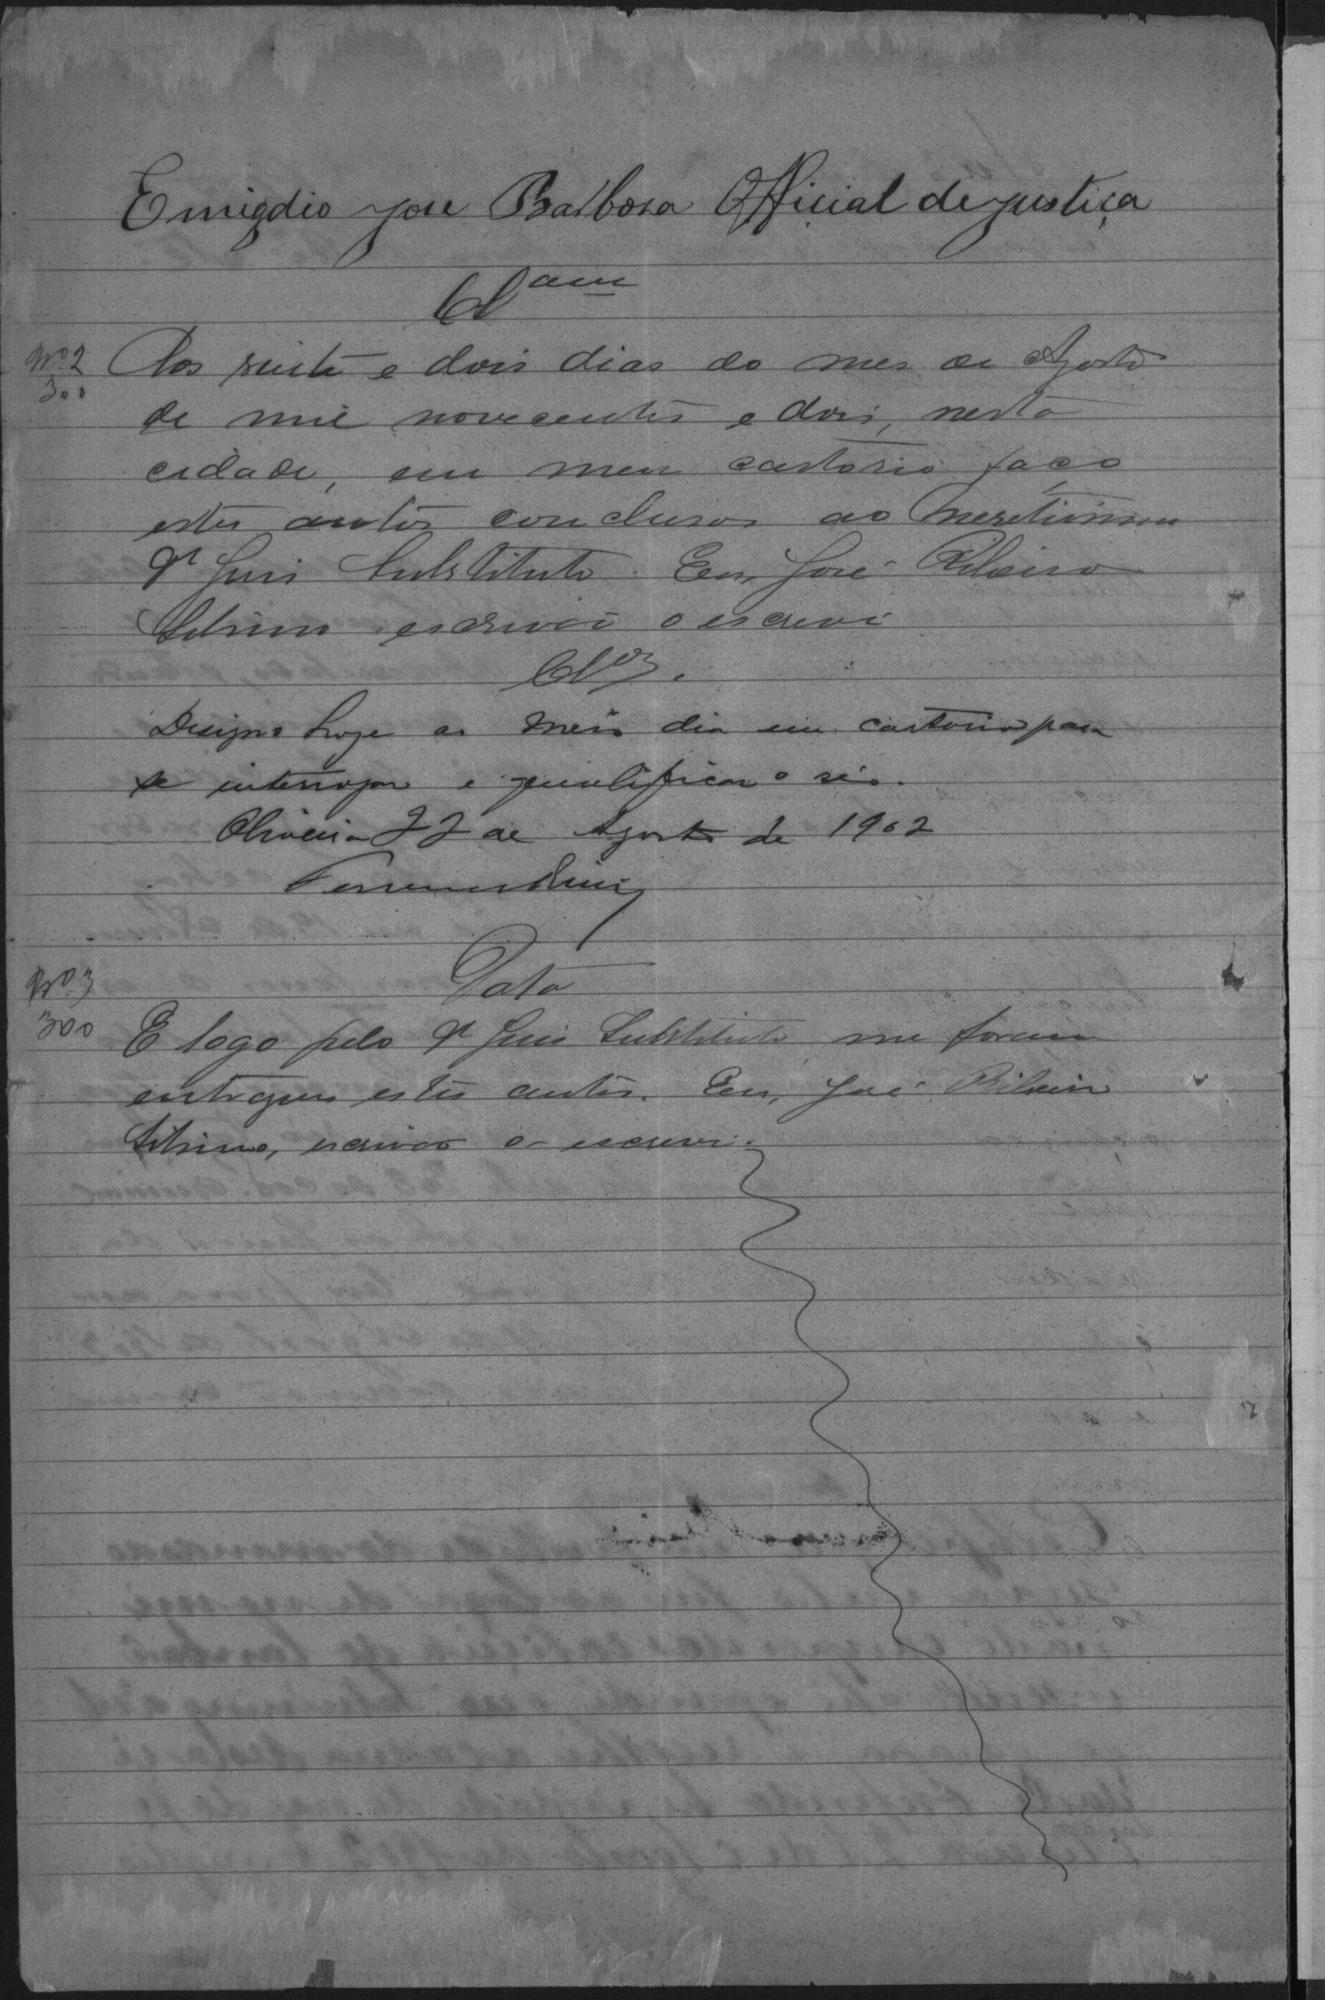 Emigdio Jose Barbosa Official de justiça
Cl.am
Nº 2 Aos vinte e dois dias do mes de Agosto
300
de mil novecentos e dois, nesta
cidade, em meu cartorio faço
estes autos conclusos ao Meretissimo
Dr Juis Substituto. Eeu, José Ribeiro
escrivão o escrevi
Cl.os.
Designo hoje as meio dia em cartorio para
se interrogar e qualificar o réo.
Oliveira 22 de Agosto de 1902
Data
Nº 3
300 E logo pelo Dr Juis Substituto me foram
entregues estes autos. Eeu, José Ribeiro
escrivão o escrevi.